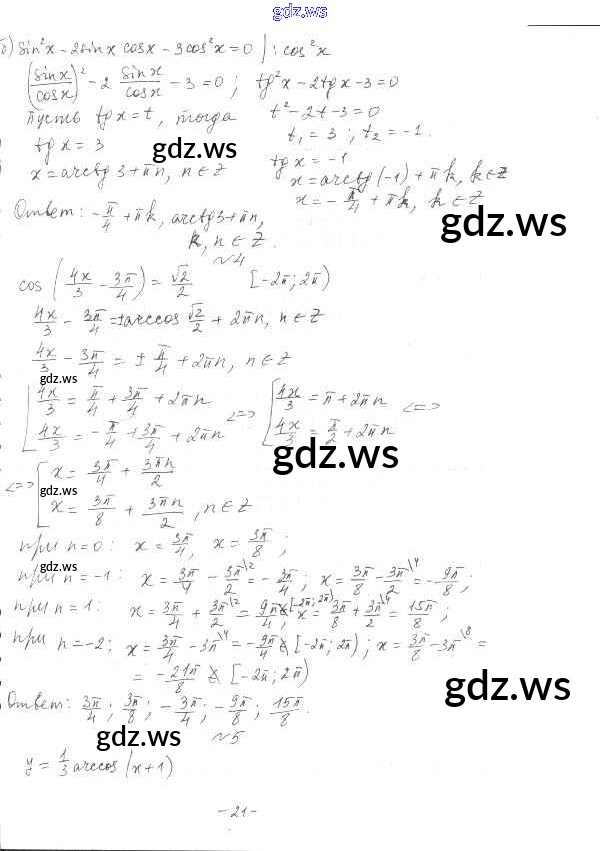 gdz.ws
б) sin²x - 2sinx cosx - 3cos²x = 0 | : cos²x
(sinx/cosx)² - 2 sinx/cosx - 3 = 0 ; tg²x - 2tgx - 3 = 0
пусть tgx = t, тогда t² - 2t - 3 = 0
t₁ = 3 ; t₂ = -1.
tgx = 3 gdz.ws tgx = -1
x = arctg3 + πn, n ∈ Z x = arctg(-1) + πk, k ∈ Z
x = -π/4 + πk, k ∈ Z
Ответ: -π/4 + πk, arctg3 + πn, gdz.ws
k, n ∈ Z.
№4
cos (4x/3 - 3π/4) = √2/2 [-2π; 2π)
4x/3 - 3π/4 = ±arccos √2/2 + 2πn, n ∈ Z
4x/3 - 3π/4 = ± π/4 + 2πn, n ∈ Z
gdz.ws
[ 4x/3 = π/4 + 3π/4 + 2πn <=> [ 4x/3 = π + 2πn <=>
4x/3 = -π/4 + 3π/4 + 2πn 4x/3 = π/2 + 2πn
gdz.ws
<=> [ x = 3π/4 + 3πn/2
gdz.ws
x = 3π/8 + 3πn/2, n ∈ Z
при n=0: x = 3π/4, x = 3π/8 ;
gdz.ws
при n=-1: x = 3π/4 - 3π/2\2 = -3π/4 ; x = 3π/8 - 3π/2\4 = -9π/8 ;
при n=1: x = 3π/4 + 3π/2\2 = 9π/4 ∉ [-2π; 2π), x = 3π/8 + 3π/2\4 = 15π/8 ;
gdz.ws
при n=-2; x = 3π/4 - 3π\4 = -9π/4 ∉ [-2π; 2π) ; x = 3π/8 - 3π\8 =
= -21π/8 ∉ [-2π; 2π)
gdz.ws
Ответ: 3π/4 ; 3π/8 ; -3π/4 ; -9π/8 ; 15π/8.
gdz.ws
№5
y = 1/3 arccos (x+1)
-21-